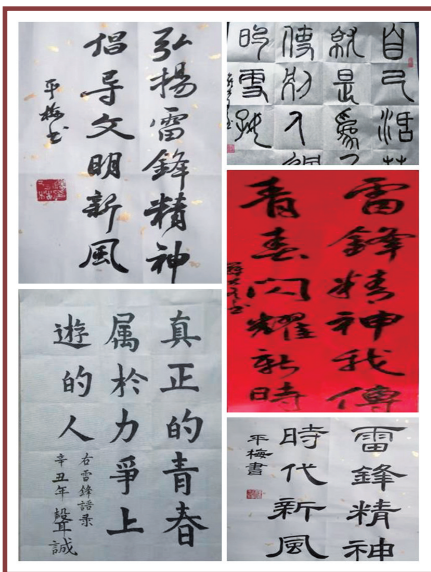 弘扬雷鋒精神
倡导文明新風
平梅书
自己活
就是為了
使别人
的雪
雷鋒精神我傳
青春閃耀新時
真正的青春
属於力爭上
遊的人
右雷鋒語录
辛丑年
誠
雷鋒精神
時代新風
平梅書